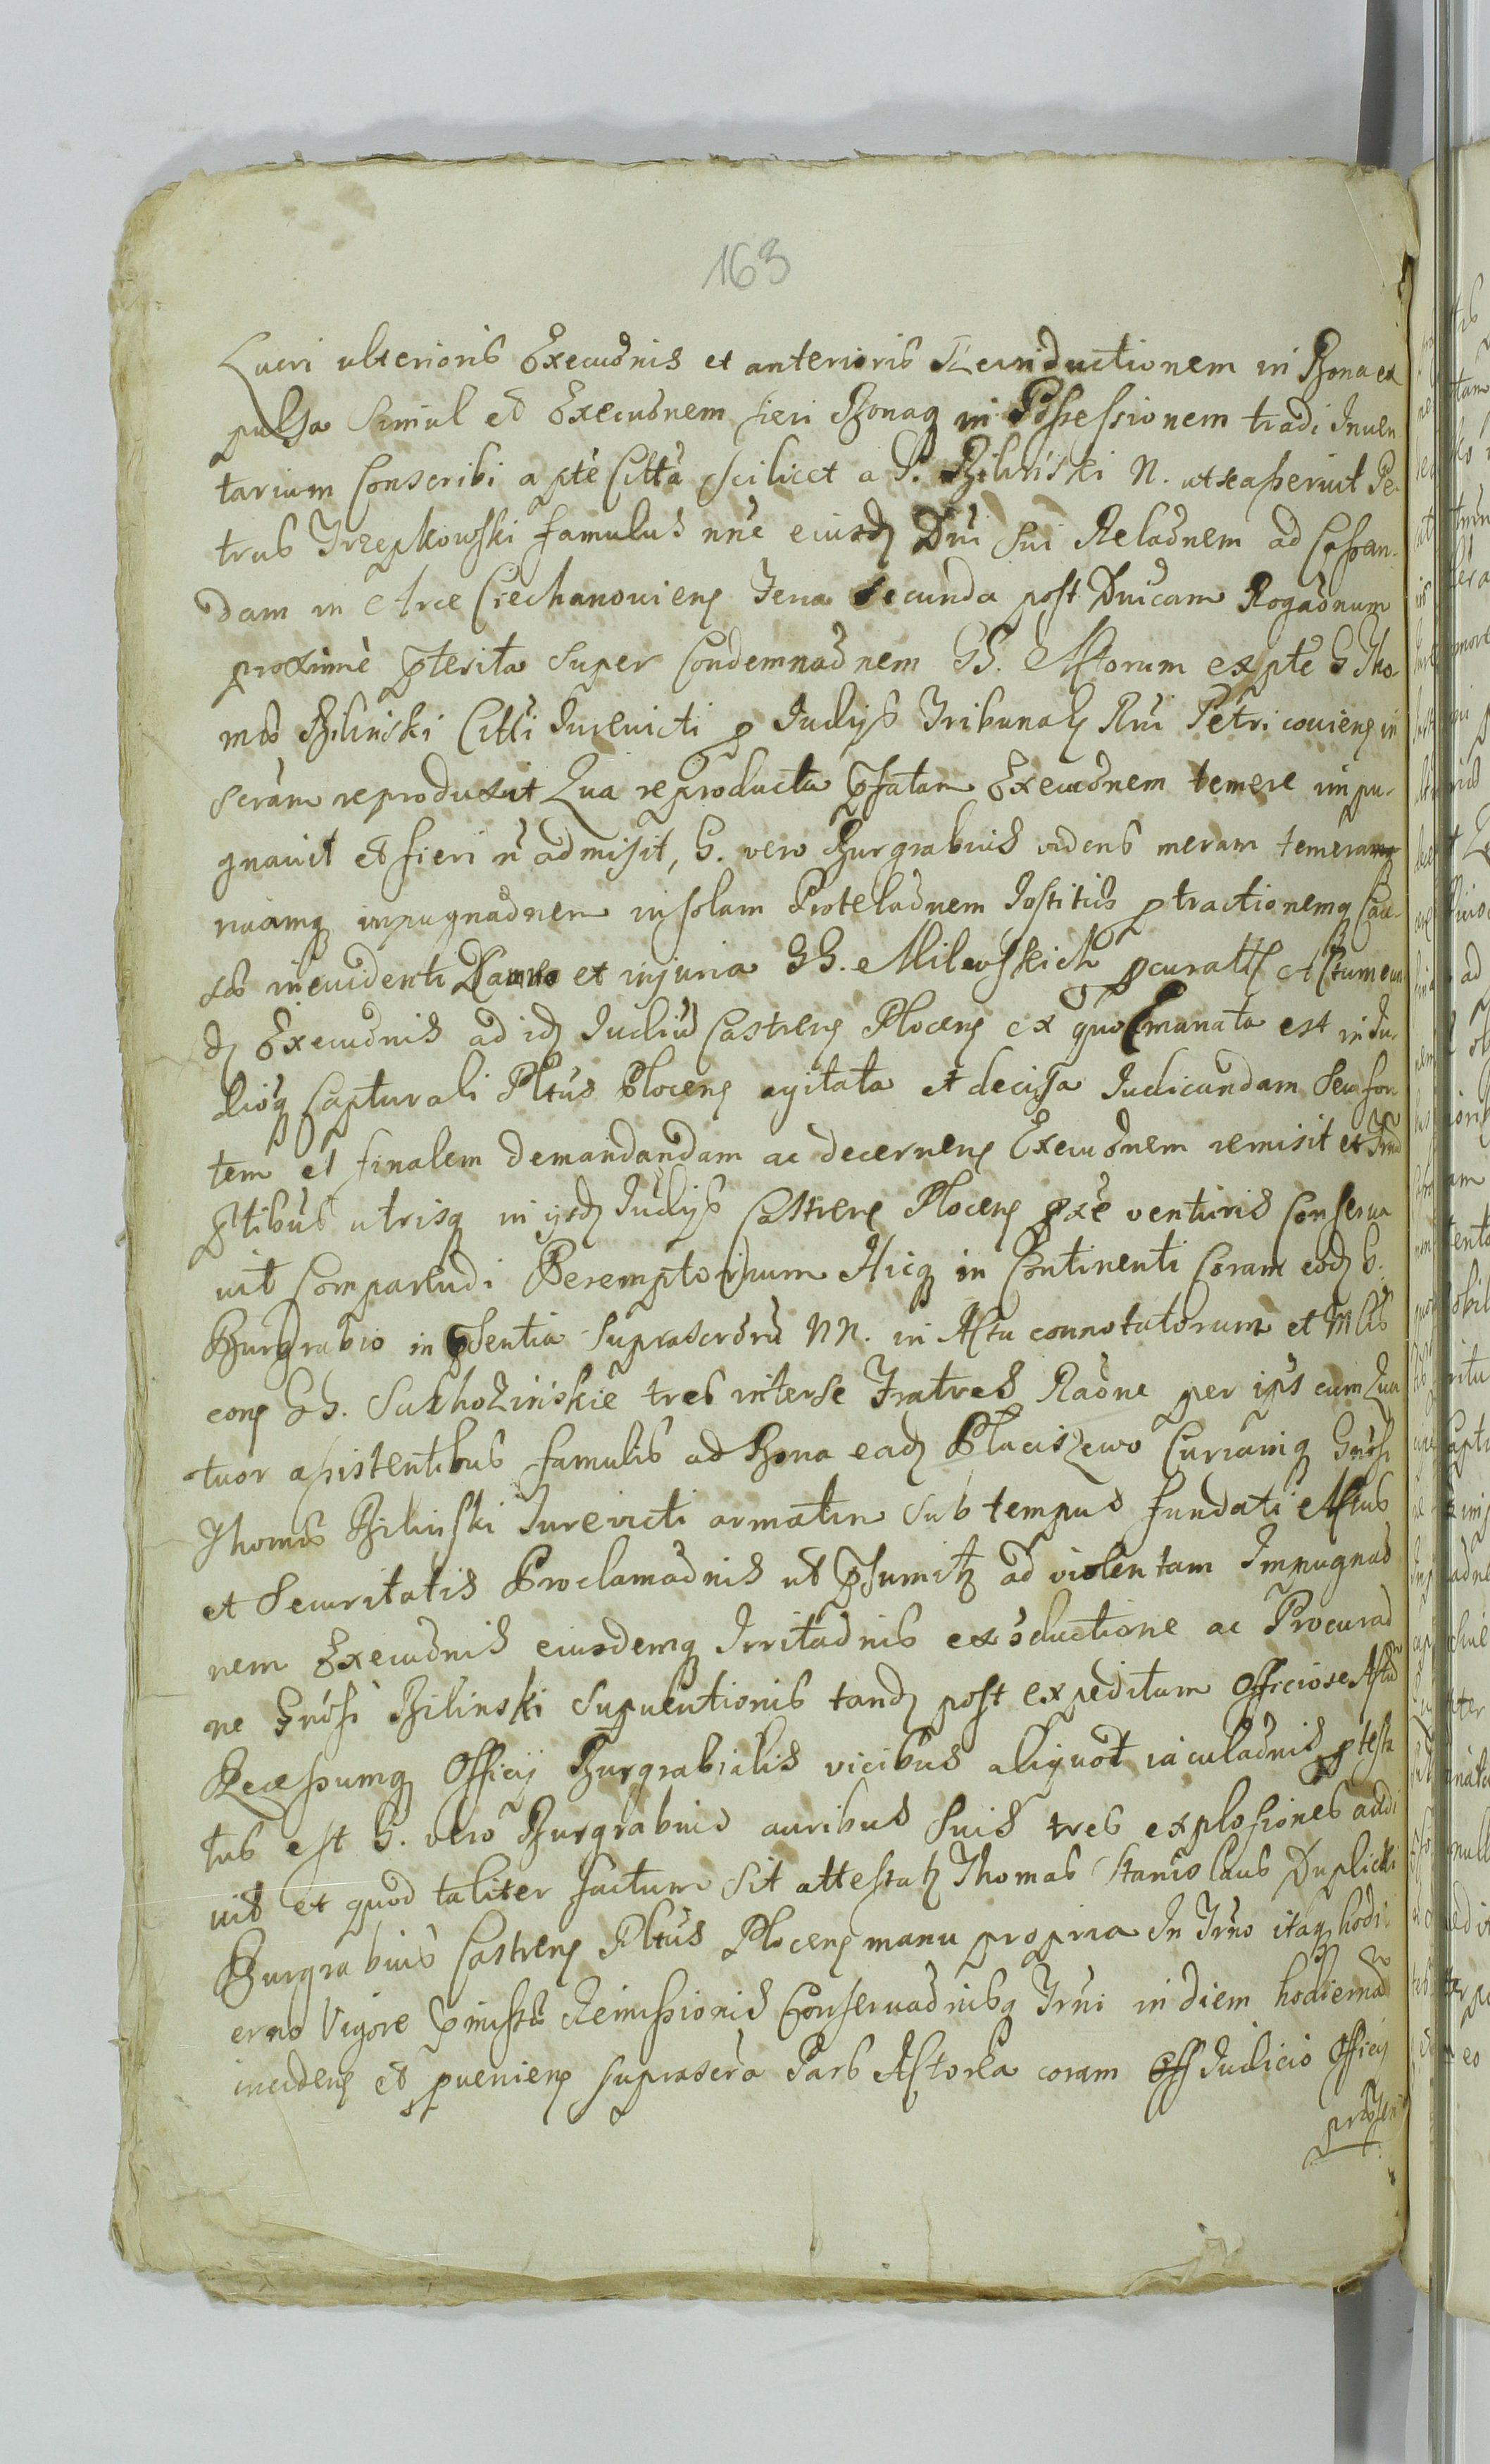 163
Lucri ulterioris Execuõnis et anterioris Reinductionem in Bona ex
pulsa Simul et Execuõnem fieri Bonaq in Possessionem tradi Inuen
tarium Conscribi a pte Citta scilicet a G. Biliński N. ut se asseruit Pe-
trus Trzepkowski famulus nne eiusd Dni sui Relaõnem ad Cassan-
dam in Arce Ciechanouiens Feria secunda post Dnicam Rogaõnum
proxime pterita super Condemnaõnem GG. Actorum ex pte G Tho-
mæ Biliński Citti Iurevicti p Iudijs Tribunal Rni Petricouiens in
scram reproduxit Qua reproducta pfatam Execuõnem temere impu-
gnauit et fieri ñ admisit, G. vero Burgrabius videns meram temera
riamq impugnaõnem in solam Protelaõnem Iustitiæ ptractionemq Cau-
sæ in euidenti Damno et injuria GG. Milewskich pcurat Actum eun
d Execuõnis ad id Iudiũ Castrens Plocens ex quo Emanata est in Iu-
dioq Capturali Pltus Plocens agitata et decisa Iudicandam seu for
tem et finalem demandandam ac decernens Execuõnem remisit et Trnũ
ptibus utrisq in ijsd Iudijs Castrens Plocens pxe venturis Conserua
uit Comparendi Peremptorium Hicq in Continenti Coram eod G.
Burgrabio in psentia suprascrõrũ NN. in Actu connotatorum et Mltis
cons GG. Sukhozińskie tres interse Fratres Raõne per ips cum Qua
tuor assistentibus famulis ad Bona ead Placiszewo Curiamq Gnosi
Thomæ Biliński Iurevicti armatim sub tempus fundati Actus
et Securitatis Proclamaõnis ut psumit ad violentam Impugnaõ
nem Execuõnis eiusdemq Irritaõnis ex oductione ac Procuraõ
ne Gnosi Bilinski Supuentionis tand post expeditum Officiose Actũ
Recessumq Officij Burgrabialis vicibus aliquot iaculaõnis ptesta
tus est G. vero Burgrabius auribus suis tres explosiones audi
uit et quod taliter factum sit attestat Thomas Stanislaus Duplicki
Burgrabius Castrens Pltus Plocens manu propria In Trno itaq hodi
erno Vigore pmissæ Remissionis Conseruaõnisq Trni in diem hodiernã
incidens et pueniens suprascra Pars Actorea coram Iudicio Officij